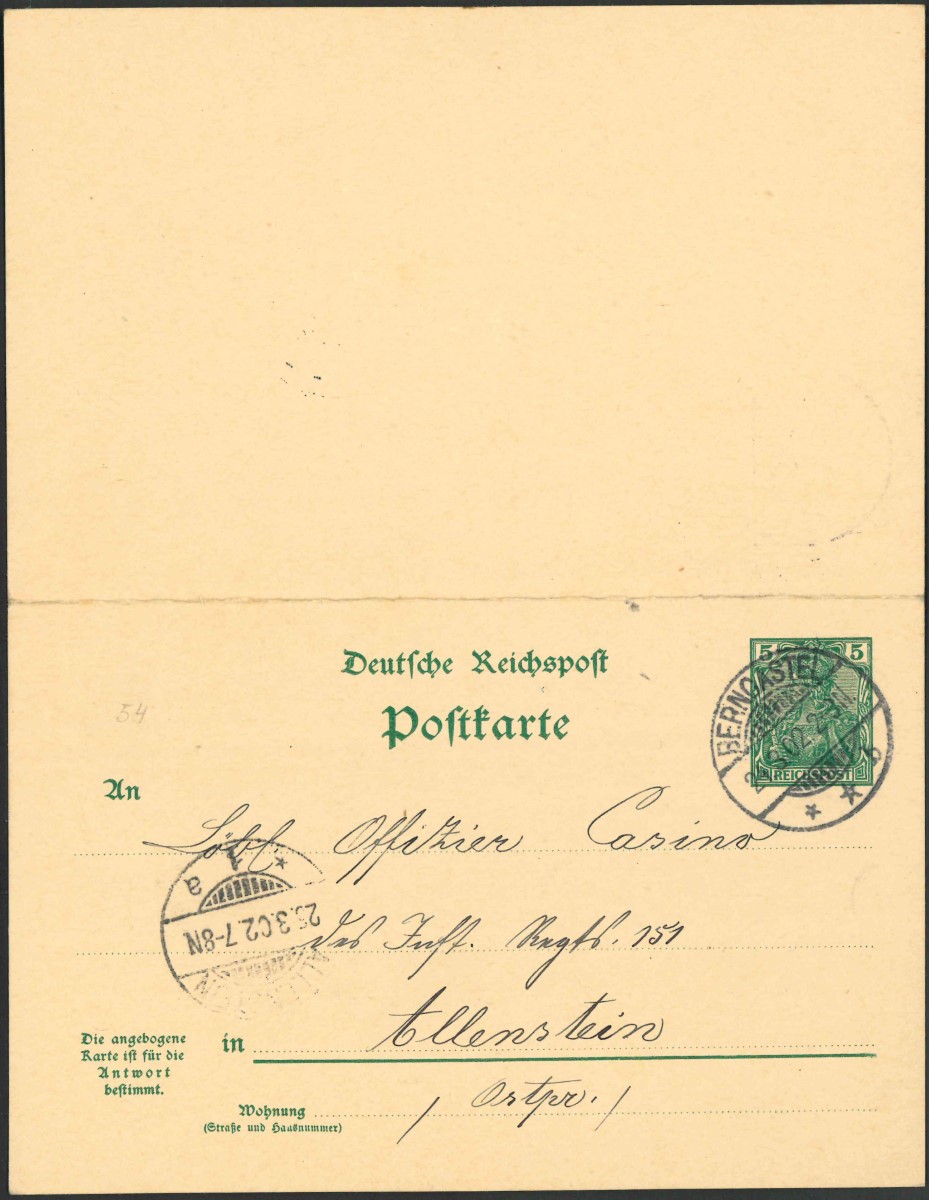 Deutsche Reichspost
Postkarte
5 5
REICHSPOST
BERNCASTEL
.02. 2-3N
b
54
An
Löbl. Offizier Casino
1
a
.3.02.7-8N
des Inft. Regts. 151
Allenstein
in
Die angebogene
Karte ist für die
Antwort
bestimmt.
/ Ostpr. /
Wohnung
(Straße und Hausnummer)